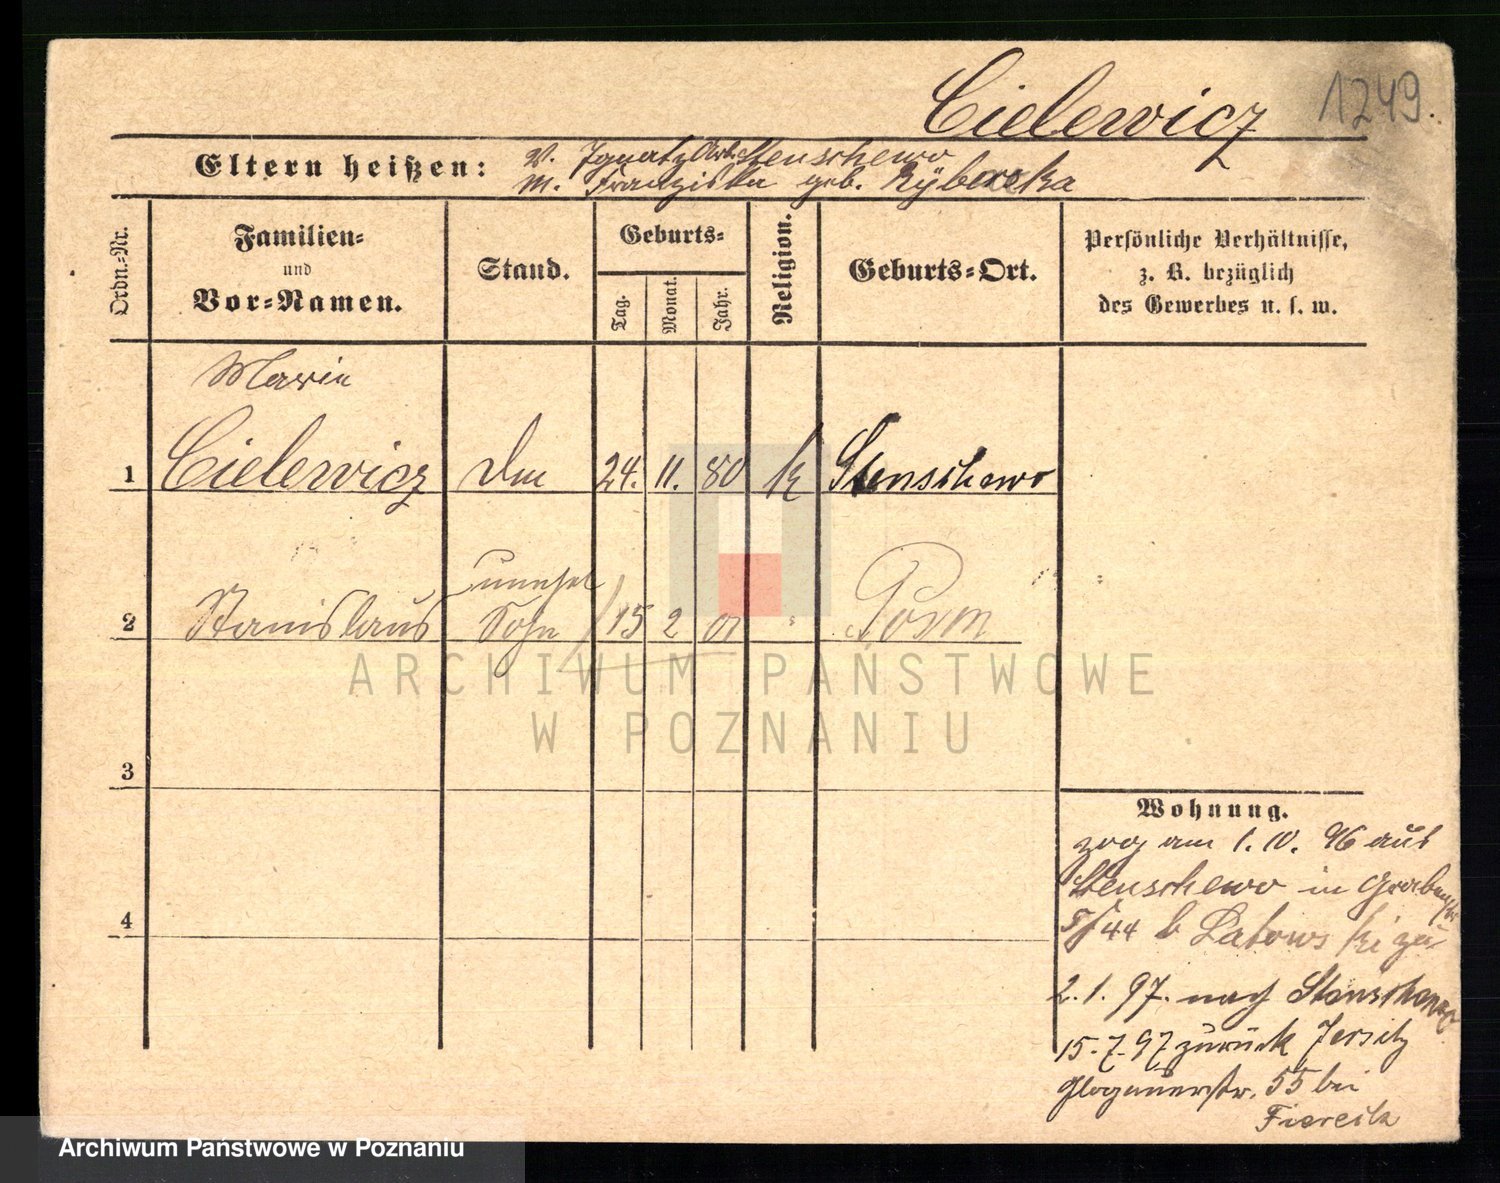 Cielewicz 1249.
Eltern heißen: V. Ignatz Arb. Stenschewo
M. Franziska geb. Rybarska
Ordn.-Nr.
Familien-
und
Vor-Namen.
Stand.
Geburts-
Tag.
Monat.
Jahr.
Religion.
Geburts-Ort.
Persönliche Verhältnisse,
z. B. bezüglich
des Gewerbes u. s. w.
Marie
1 Cielewicz 24. 11. 80 k Stenschewo
unehel
2 Stanislaus Sohn 15 2 01 " Posen
3
4
Wohnung.
zog am 1. 10. 96 aus
Stenschewo in Grabenstr
44 b zu
2. 1. 97. nach Stenschewo
15. 7. 97 zurück Jersitz
Glogauerstr. 55 bei
ARCHIWUM PAŃSTWOWE
W POZNANIU
Archiwum Państwowe w Poznaniu